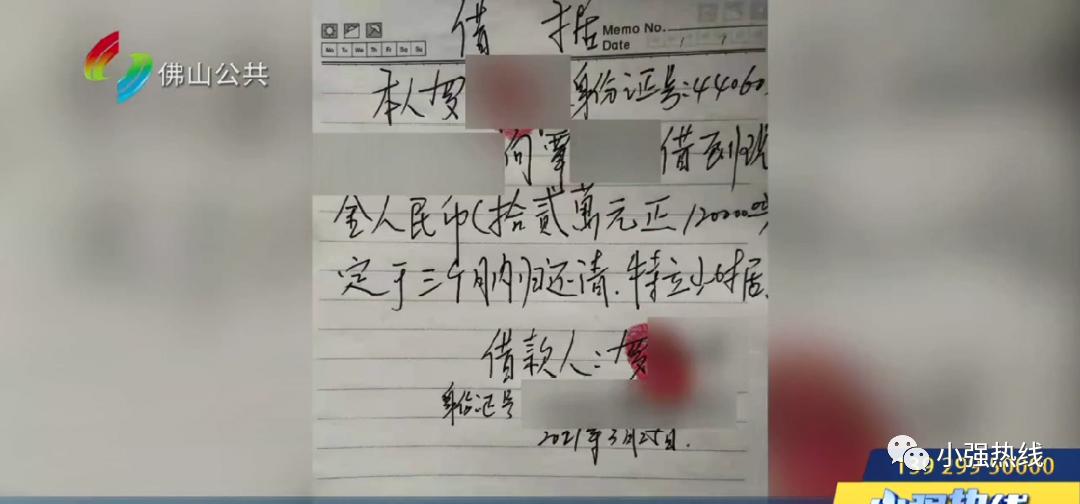 借 据
Memo No.
Date / /
Mo Tu We Th Fr Sa Su
佛山公共
本人罗 身份证号:44060
向覃 借到现
金人民币(拾贰萬元正120000元)
定于三个月内归还清.特立此据.
借款人:罗
身份证号
2021年3月25日.
小强热线
小强热线